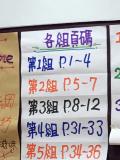 各組頁碼
第1組 P.1-4
第2組 P.5-7
第3組 P.8-12
第4組 P.31-33
第5組 P.34-36